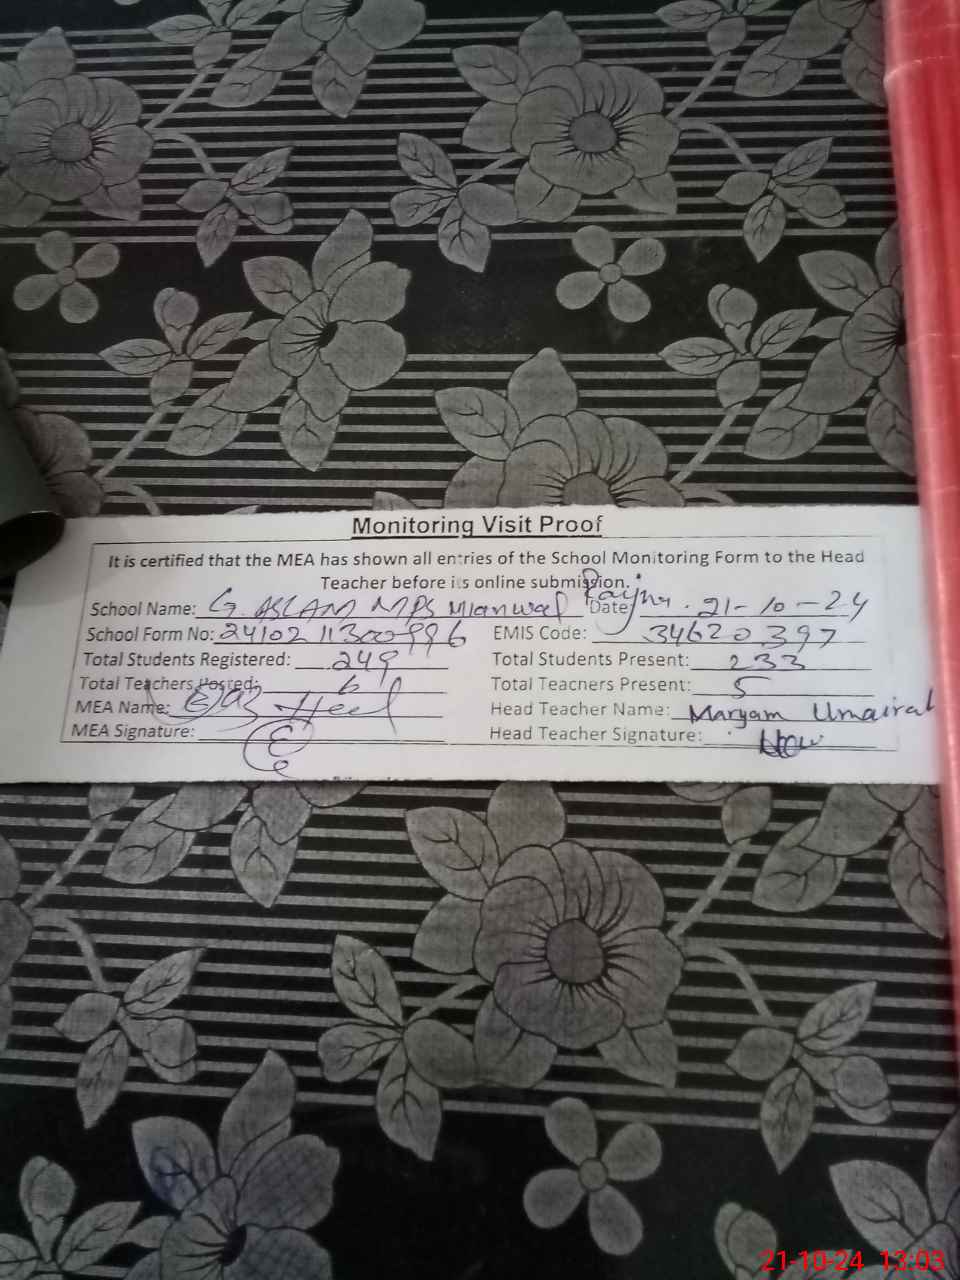 Monitoring Visit Proof
It is certified that the MEA has shown all entries of the School Monitoring Form to the Head
Teacher before its online submission.
School Name: G. ASLAM MPS Mianwal Date: 21-10-24
School Form No: EMIS Code: 34620397
Total Students Registered: 249 Total Students Present: 233
Total Teachers Posted: 6 Total Teachers Present: 5
MEA Name: Head Teacher Name: Maryam Umairah
MEA Signature: Head Teacher Signature:
21-10-24 13:03